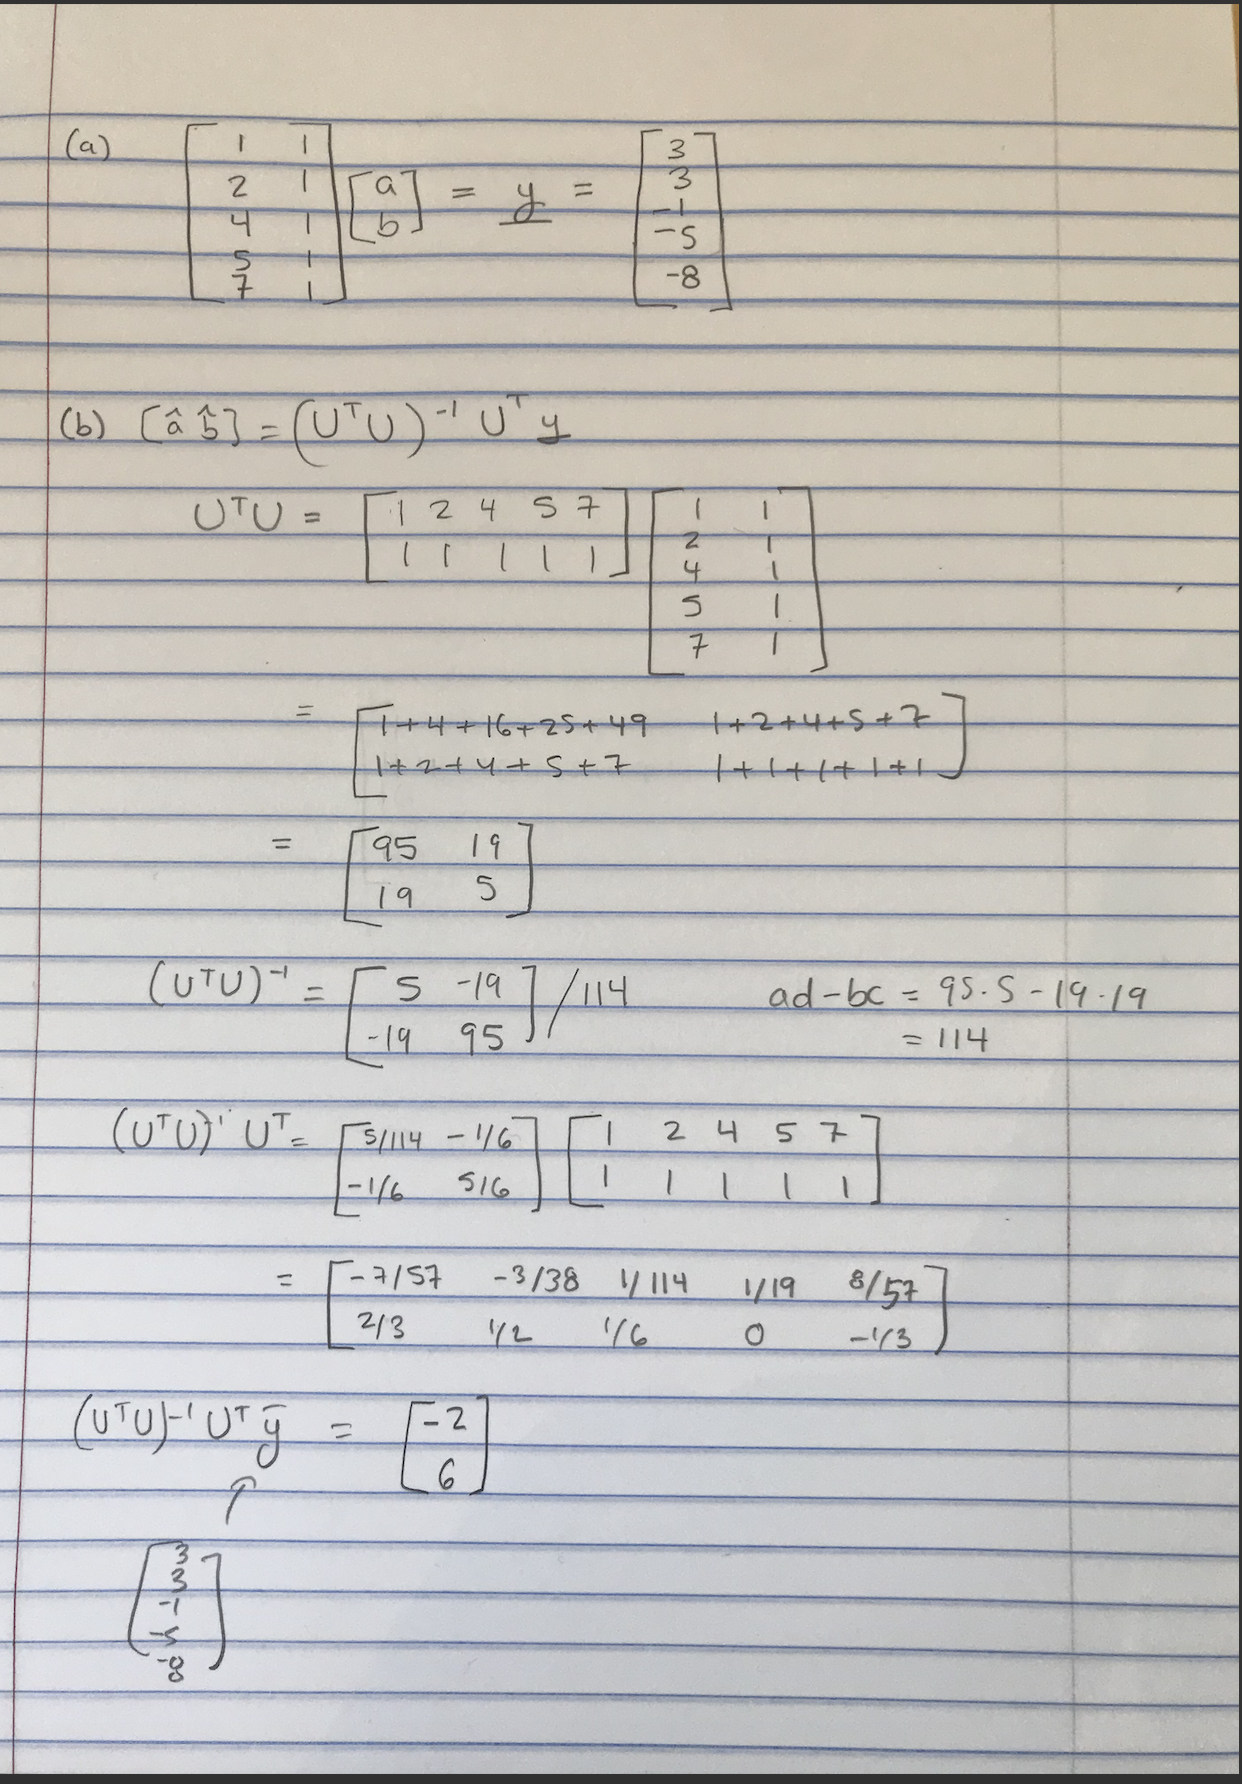 (a) [1 1; 2 1; 4 1; 5 1; 7 1] [a; b] = y = [3; 3; -1; -5; -8]
(b) [â b̂] = (UᵀU)⁻¹ Uᵀ y
UᵀU = [1 2 4 5 7; 1 1 1 1 1] [1 1; 2 1; 4 1; 5 1; 7 1]
= [1+4+16+25+49 1+2+4+5+7; 1+2+4+5+7 1+1+1+1+1]
= [95 19; 19 5]
(UᵀU)⁻¹ = [5 -19; -19 95] / 114 ad-bc = 95·5 - 19·19
= 114
(UᵀU)⁻¹ Uᵀ = [5/114 -1/6; -1/6 5/6] [1 2 4 5 7; 1 1 1 1 1]
= [-7/57 -3/38 1/114 1/19 8/57; 2/3 1/2 1/6 0 -1/3]
(UᵀU)⁻¹ Uᵀ y = [-2; 6]
[3; 3; -1; -5; -8]